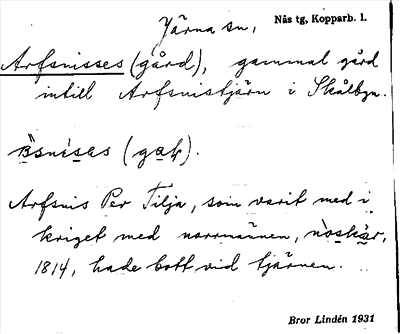 Järna sn, Nås tg, Kopparb. l.
Arfsnisses (gård), gammal gård
intill Arfsnistjärn i Skålbyn.
(gak).
Arfsnis Per Tilja, som varit med i
kriget med norrmännen,
1814, hade bott vid tjärnen.
Bror Lindén 1931